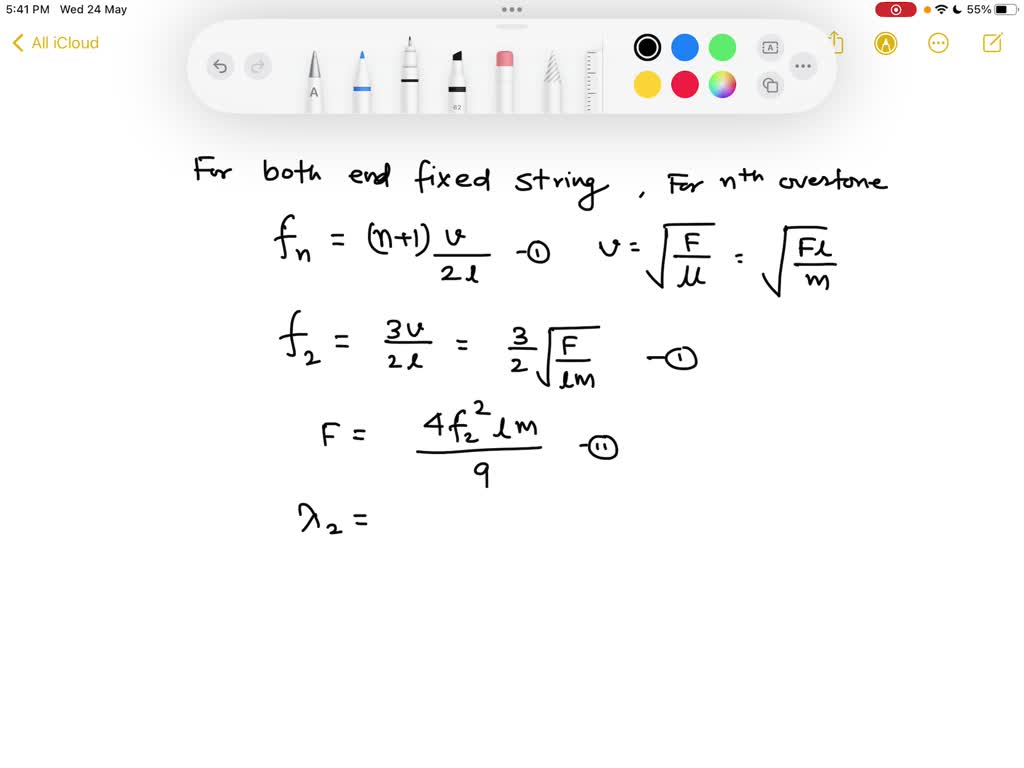 5:41 PM Wed 24 May 55%
All iCloud
A 62 A
For both end fixed string, For nth overtone
fn = (n+1) v/2l -① v = √(F/μ) = √(Fl/m)
f2 = 3v/2l = 3/2 √(F/lm) -①
F = 4f2² l m / 9 -⑪
λ2 =